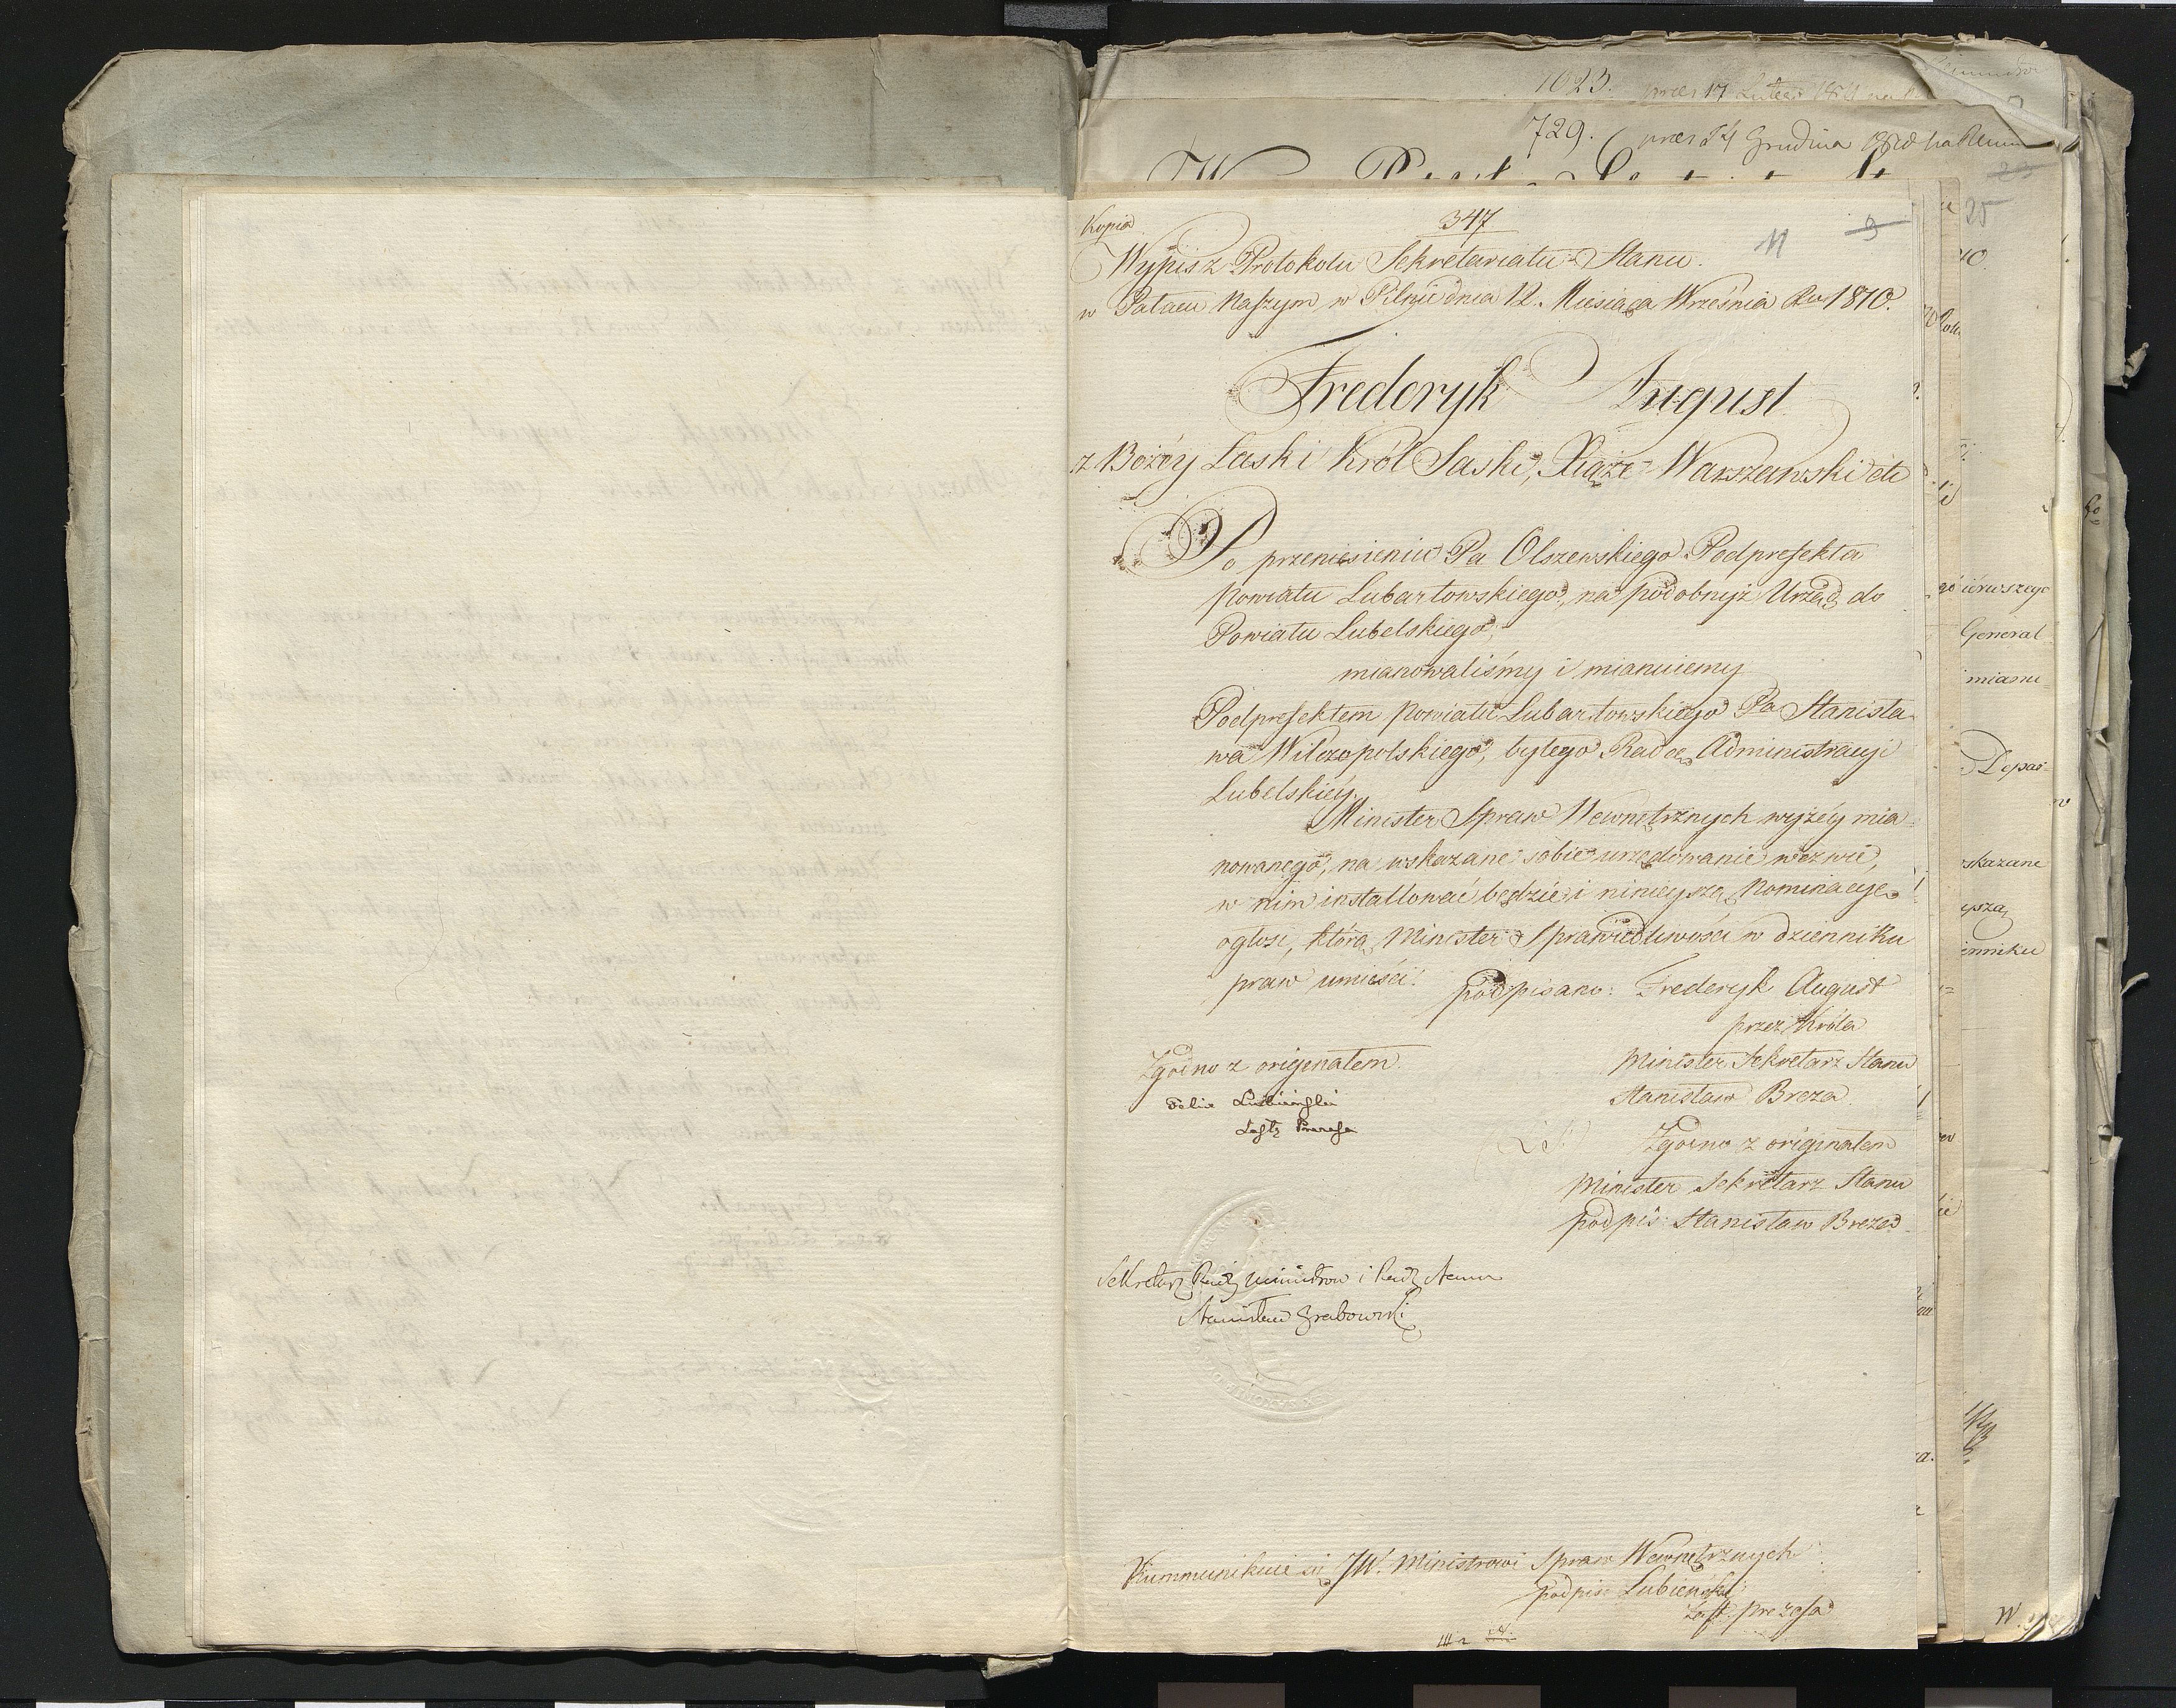 1023. præs 17 Lutego
729. præs 14 Grudnia
Kopia
347
11
9
25
Wypis z Protokołu Sekretariatu Stanu.
w Pałacu Naszym w Pilnie dnia 12. Miesiąca Września Ru 1810.
Frederyk August
z Bożéy Łaski Król Saski, Xiąże Warszawski etc
Po przeniesieniu Pa Olszewskiego Podprefekta
Powiatu Lubartowskiego, na podobnyż Urząd do
Powiatu Lubelskiego,
mianowaliśmy i mianuiemy
Podprefektem Powiatu Lubartowskiego Pa Stanisła-
wa Wilczopolskiego, byłego Radcę Administracyi
Lubelskiéy.
Minister Spraw Wewnętrznych wyżéy mia-
nowanego, na wskazane sobie urzędowanie wezwie,
w nim installować będzie i ninieyszą Nominacyę
ogłosi, którą Minister Sprawiedliwości w dzienniku
praw umieści.
podpisano: Frederyk August
przez Króla
Minister Sekretarz Stanu
Stanisław Breza
Zgodno z originałem
Felix Lubieński
Zastę Prezesa
Zgodno z originałem
Minister Sekretarz Stanu
podpis: Stanisław Breza
Sekretarz Rady Ministrow i Rady Stanu
Stanisław Grabowski
Kommunikuie się JW. Ministrowi Spraw Wewnętrznych
podpis: Lubieński
Zast. prezesa
ierwszego
General
mianu-
Depar-
skazane
yszą
enniku
W.